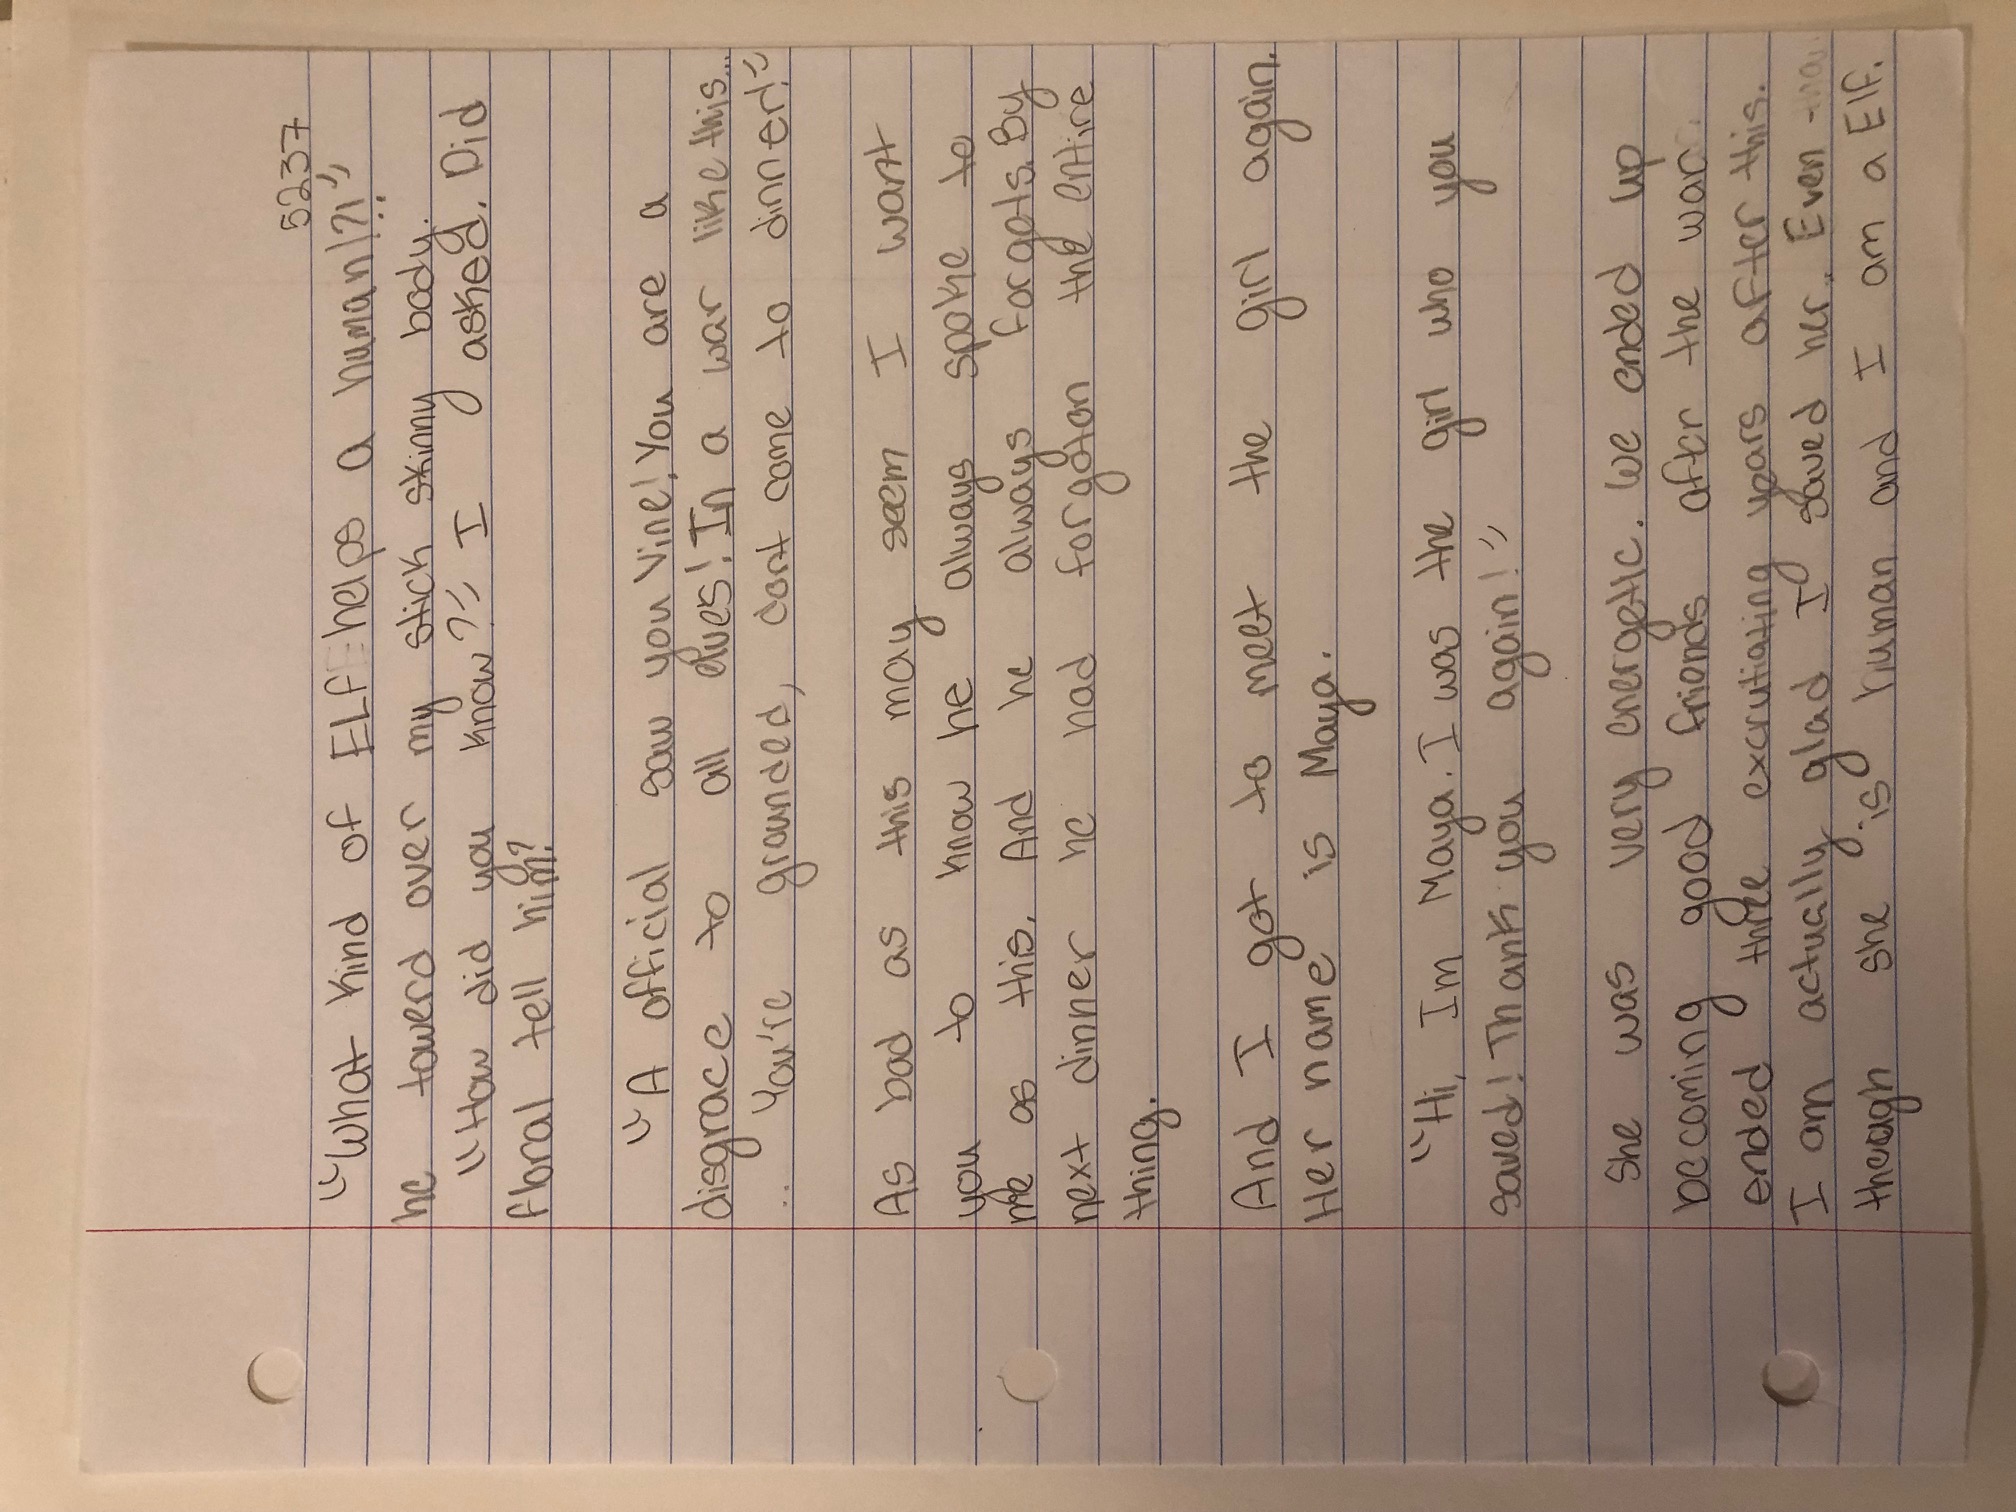 5237
"What kind of ELF helps a human!?!"
he towerd over my stick skinny body.
"How did you know?" I asked. Did
floral tell him?
"A official saw you Vine! You are a
disgrace to all elves! In a war like this...
.. You're grounded, dont come to dinner!"
As bad as this may seem I want
you to know he always spoke to
me as this. And he always forgets. By
next dinner he had forgoton the entire
thing.
And I got to meet the girl again.
Her name is Maya.
"Hi, Im Maya. I was the girl who you
saved! Thank you again!"
She was very energetic. We ended up
becoming good friends after the war
ended three excrutiating years after this.
I am actually glad I saved her. Even
though she is human and I am a Elf.